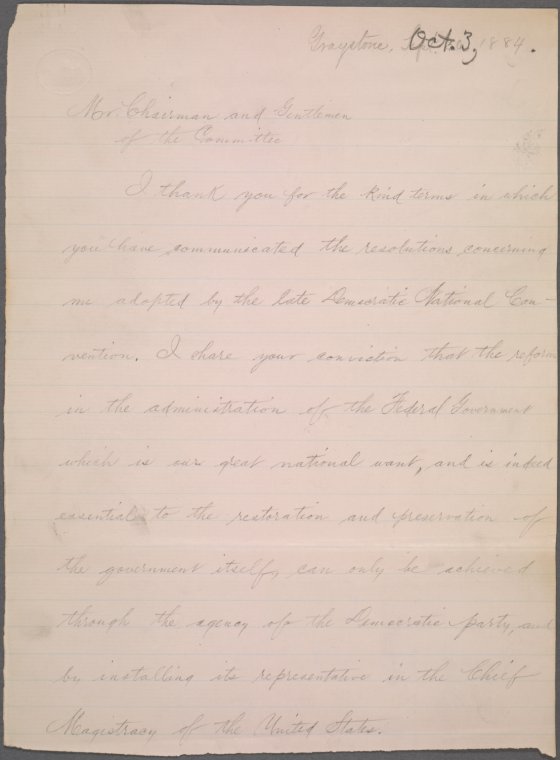 Graystone, Oct. 3, 1884.
Mr. Chairman and Gentlemen
of the Committee
I thank you for the kind terms in which
you have communicated the resolutions concerning
me adopted by the late Democratic National Con-
vention. I share your conviction that the reform
in the administration of the Federal Government
which is our great national want, and is indeed
essential to the restoration and preservation of
the government itself, can only be achieved
through the agency of the Democratic party, and
by installing its representative in the Chief
Magistracy of the United States.